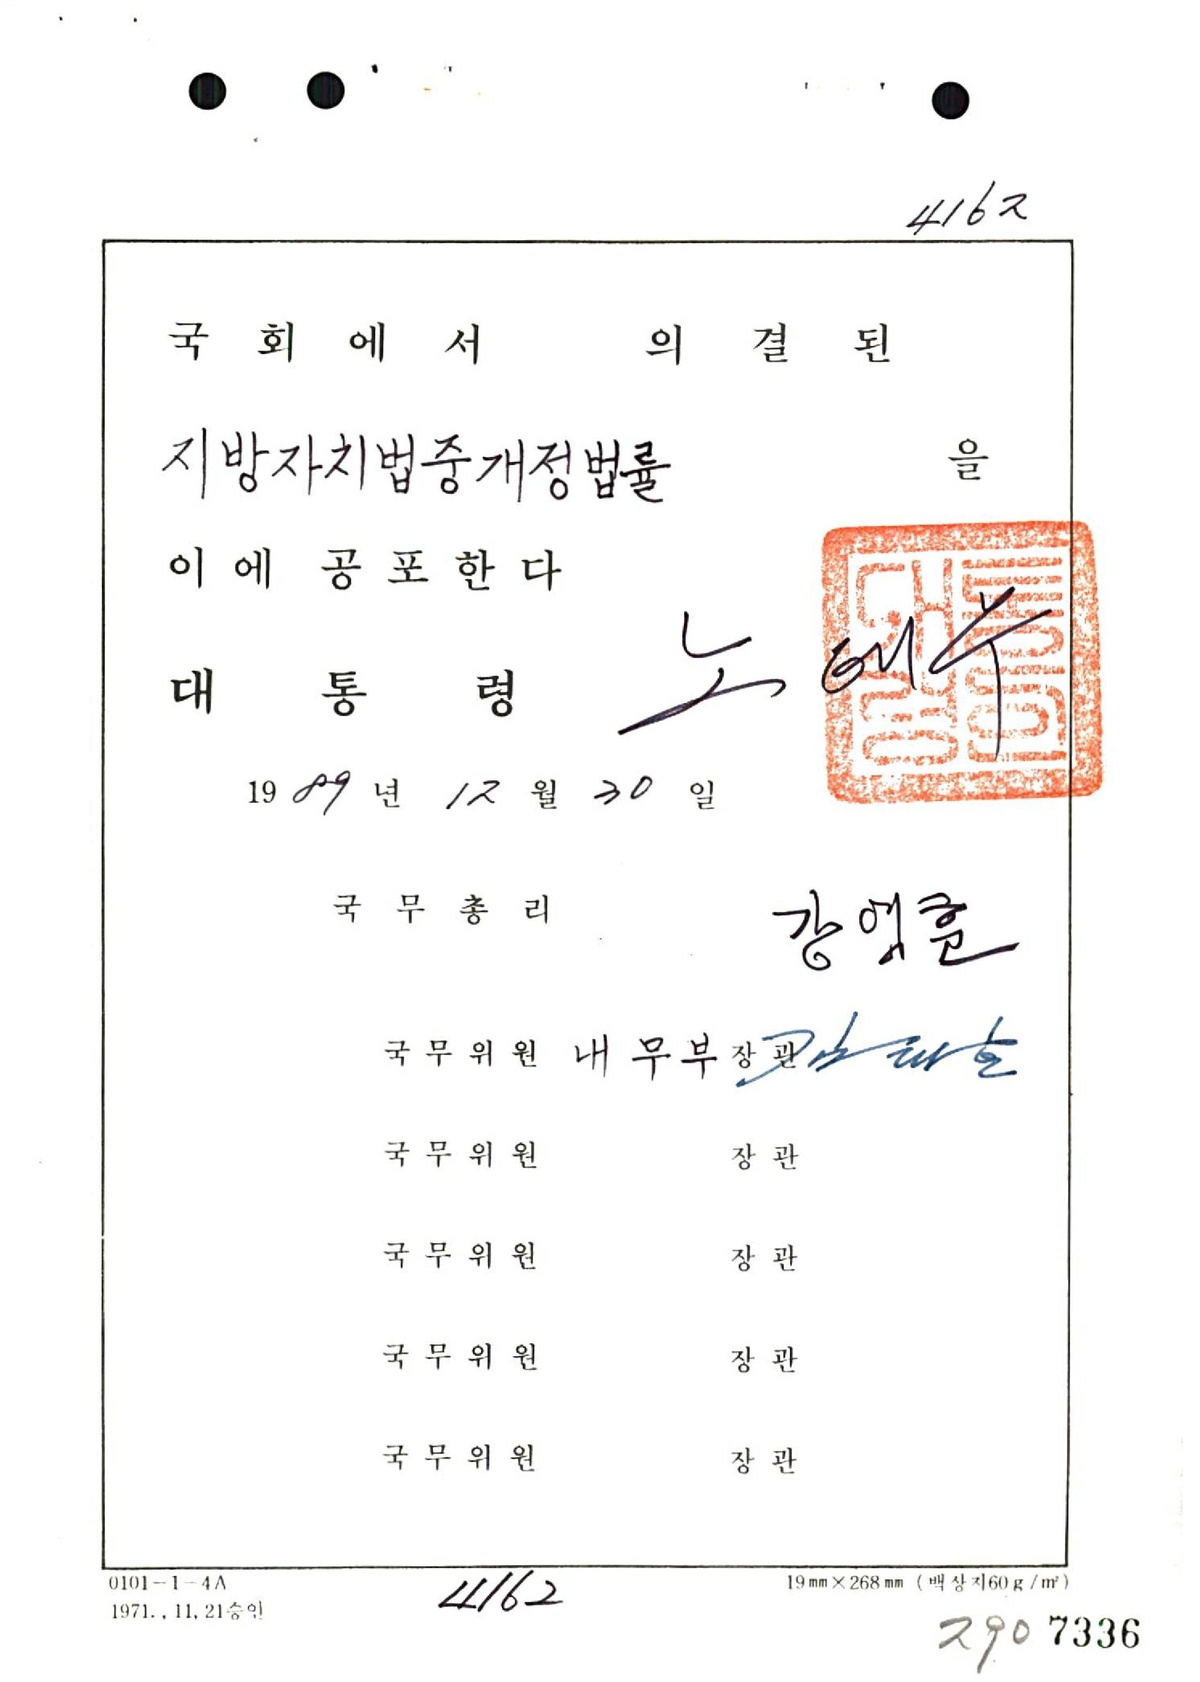 4162
국회에서 의결된
지방자치법중개정법률 을
이에 공포한다
대통령 노태우
대통령인
1989년 12월 30일
국무총리 강영훈
국무위원 내무부장관 김태호
국무위원 장관
국무위원 장관
국무위원 장관
국무위원 장관
0101-1-4A 4162 19mm×268mm (백상지60g/㎡)
1971., 11, 21승인
290 7336